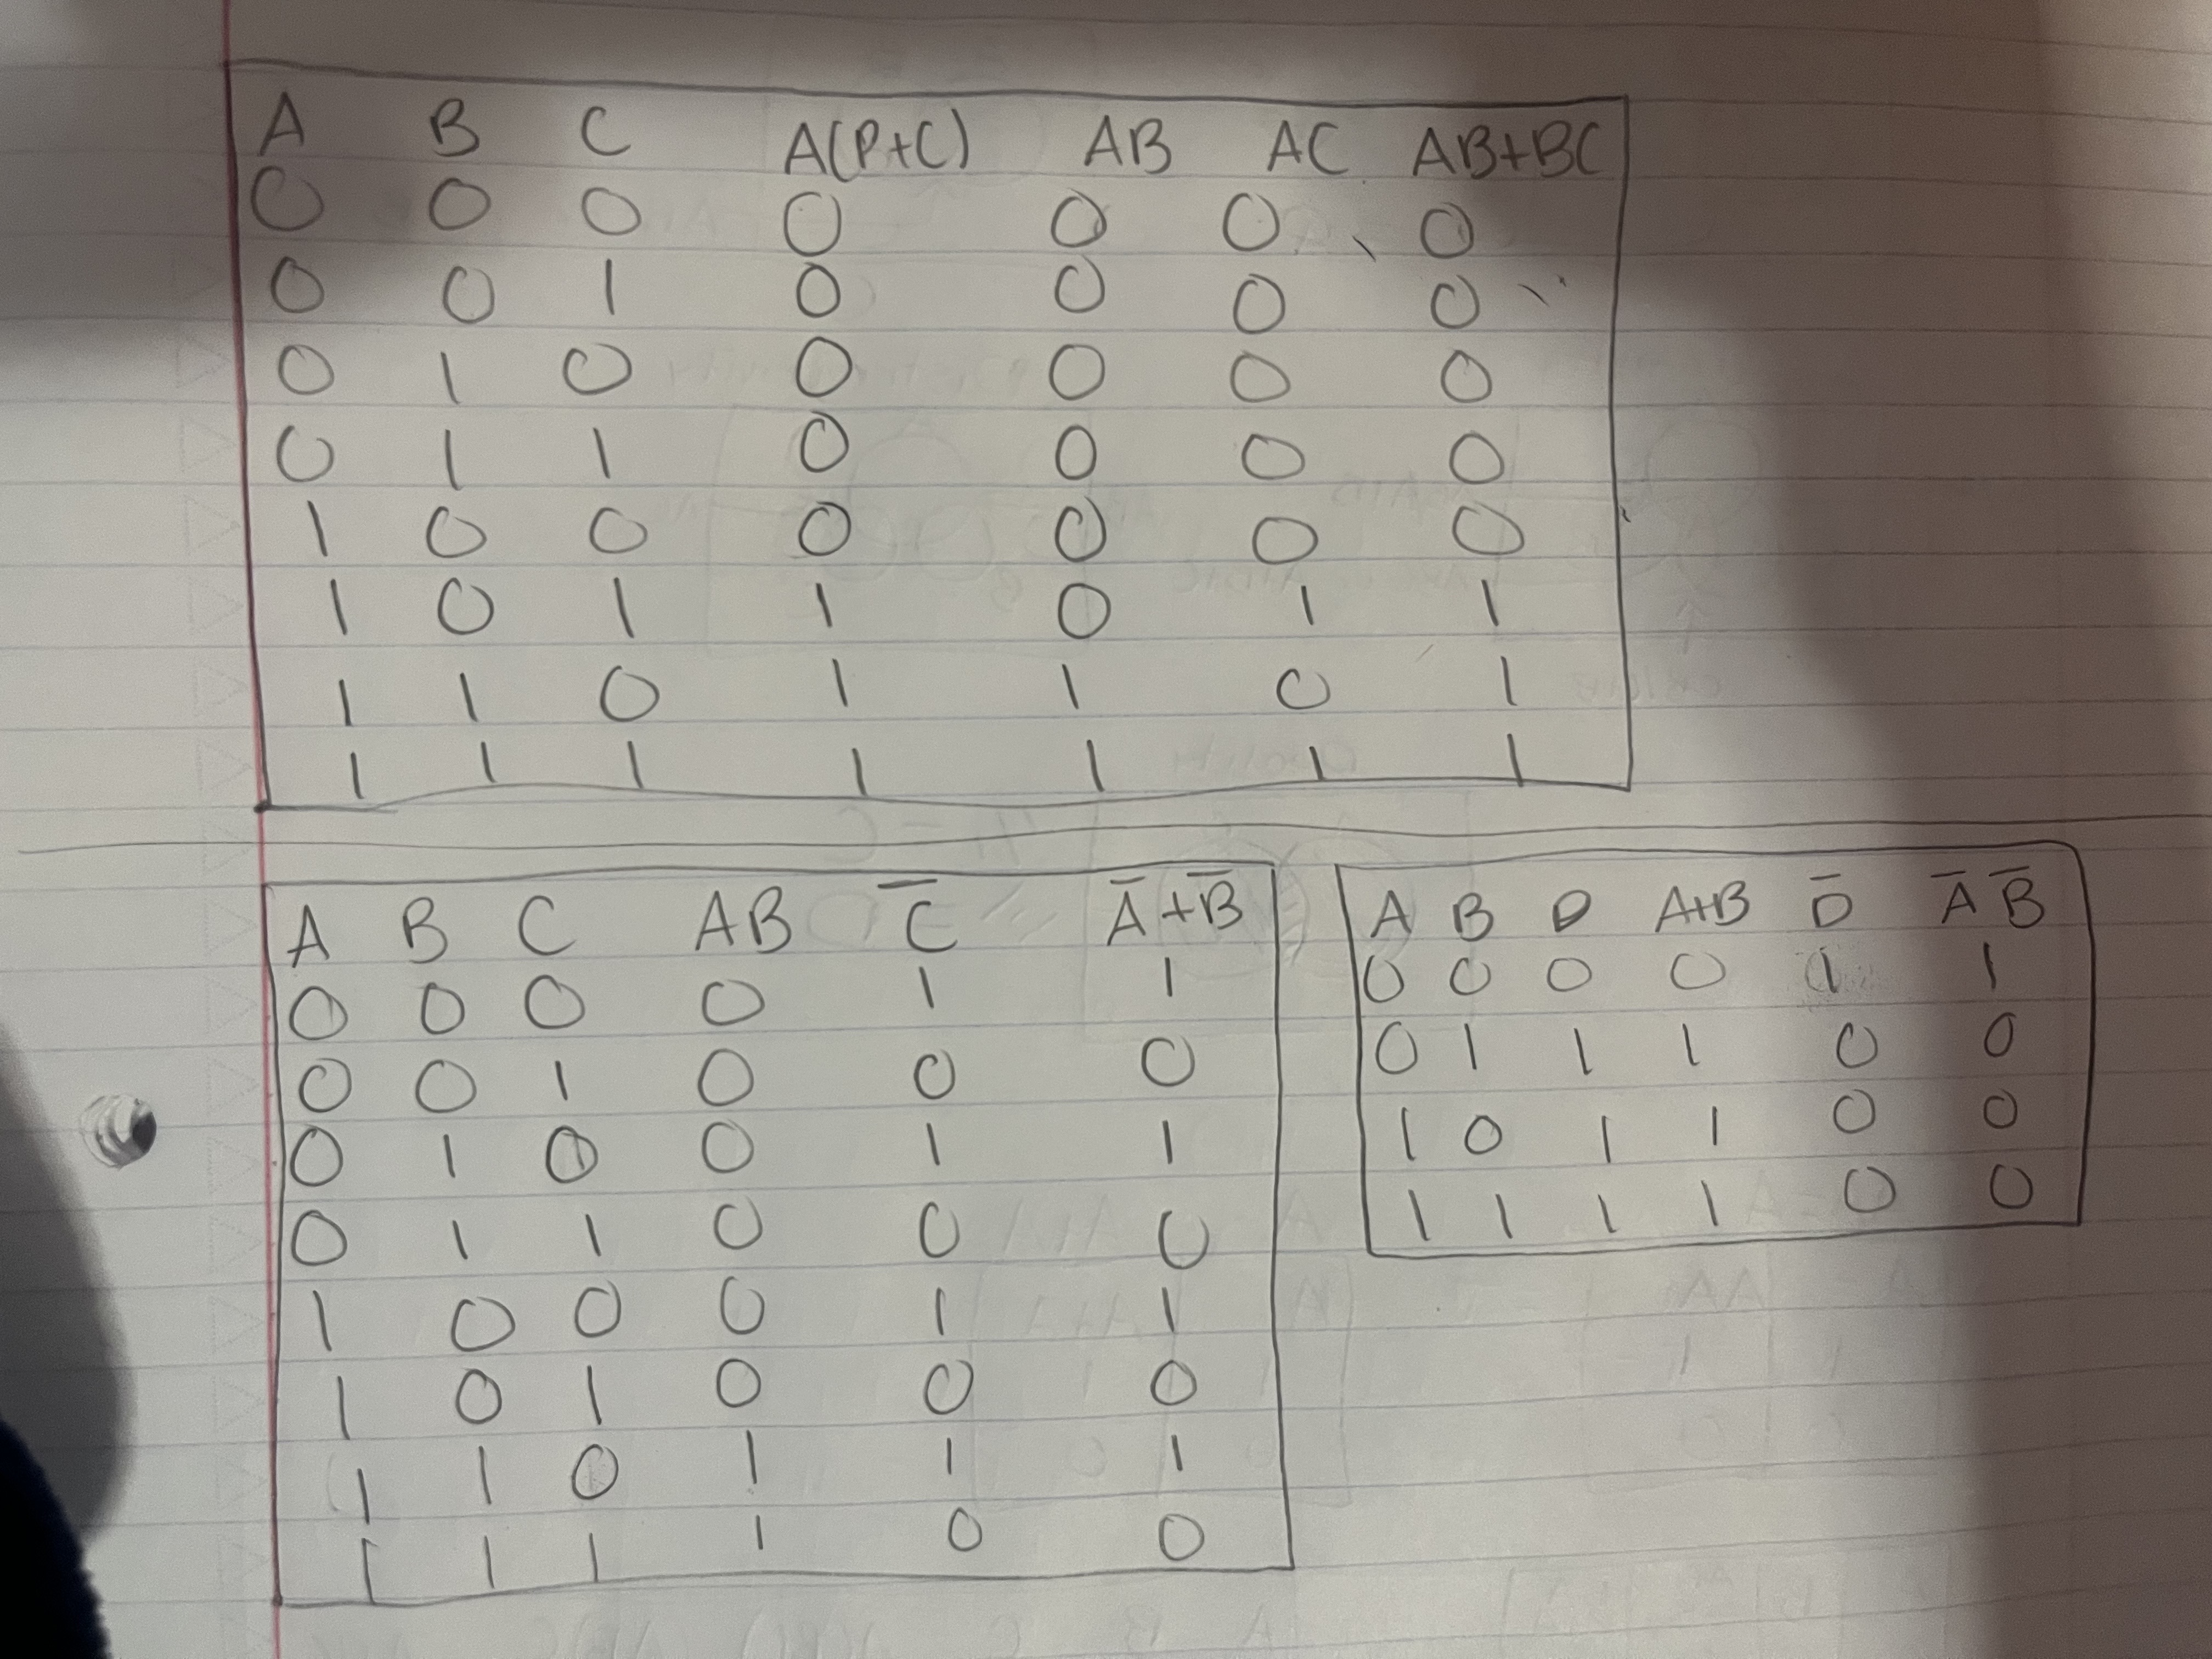 A B C A(P+C) AB AC AB+BC
0 0 0 0 0 0 0
0 0 1 0 0 0 0
0 1 0 0 0 0 0
0 1 1 0 0 0 0
1 0 0 0 0 0 0
1 0 1 1 0 1 1
1 1 0 1 1 0 1
1 1 1 1 1 1 1
A B C AB C̅ A̅+B̅
0 0 0 0 1 1
0 0 1 0 0 0
0 1 0 0 1 1
0 1 1 0 0 0
1 0 0 0 1 1
1 0 1 0 0 0
1 1 0 1 1 1
1 1 1 1 0 0
A B D A+B D̅ A̅ B̅
0 0 0 0 1 1
0 1 1 1 0 0
1 0 1 1 0 0
1 1 1 1 0 0